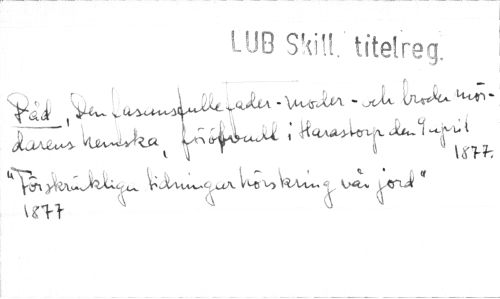 LUB Skill. titelreg.
Dåd, Den fasansfulle fader-moder- och broder mör-
darens hemska, föröfvadt i Harastorp den 9 april
1877.
"Förskräckliga tidningar hörs kring vår jord"
1877